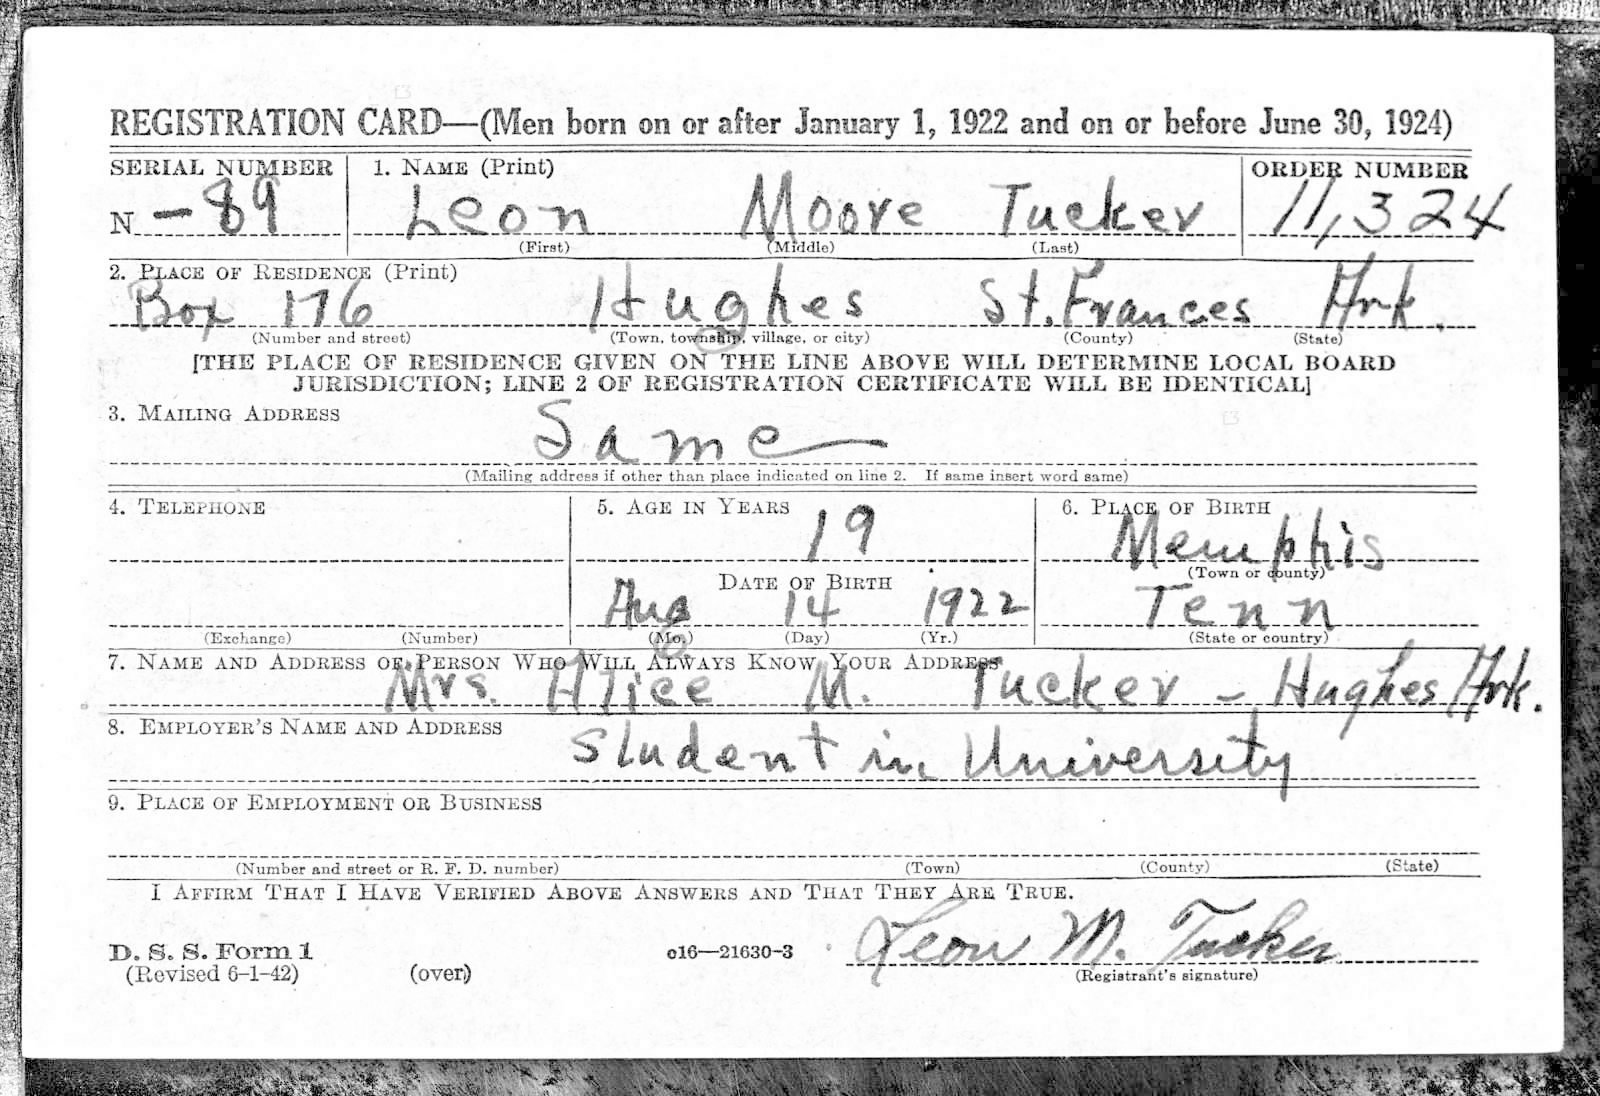 REGISTRATION CARD—(Men born on or after January 1, 1922 and on or before June 30, 1924)
SERIAL NUMBER 1. NAME (Print) ORDER NUMBER
N -89 Leon Moore Tucker 11,324
(First) (Middle) (Last)
2. PLACE OF RESIDENCE (Print)
Box 176 Hughes St. Frances Ark.
(Number and street) (Town, township, village, or city) (County) (State)
[THE PLACE OF RESIDENCE GIVEN ON THE LINE ABOVE WILL DETERMINE LOCAL BOARD
JURISDICTION; LINE 2 OF REGISTRATION CERTIFICATE WILL BE IDENTICAL]
3. MAILING ADDRESS
Same
(Mailing address if other than place indicated on line 2. If same insert word same)
4. TELEPHONE 5. AGE IN YEARS 6. PLACE OF BIRTH
19 Memphis
(Town or county)
DATE OF BIRTH
Aug 14 1922 Tenn
(Exchange) (Number) (Mo.) (Day) (Yr.) (State or country)
7. NAME AND ADDRESS OF PERSON WHO WILL ALWAYS KNOW YOUR ADDRESS
Mrs. Alice M. Tucker - Hughes Ark.
8. EMPLOYER'S NAME AND ADDRESS
Student in University
9. PLACE OF EMPLOYMENT OR BUSINESS
(Number and street or R. F. D. number) (Town) (County) (State)
I AFFIRM THAT I HAVE VERIFIED ABOVE ANSWERS AND THAT THEY ARE TRUE.
D. S. S. Form 1 c16—21630-3 Leon M. Tucker
(Revised 6-1-42) (over) (Registrant's signature)